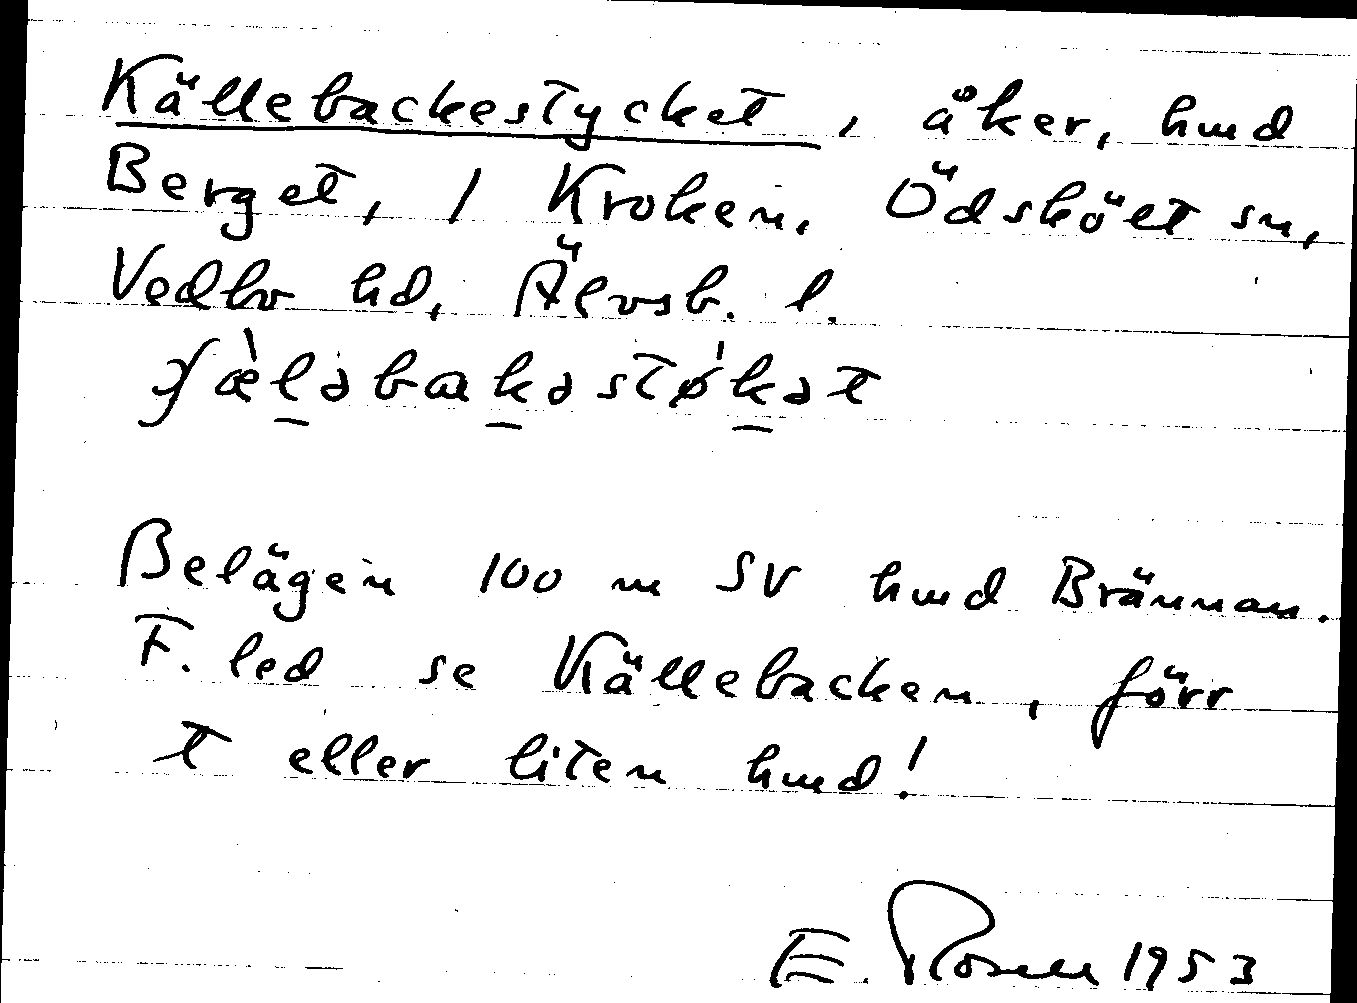 Källebackestycket, åker, hmd
Berget, 1 Kroken, Ödsköet sn,
Vedbo hd, Älvsb. l.
Belägen 100 m SV hmd Brännan.
F. led se Källebacken, förr
t eller liten hmd!
E. Rosell 1953